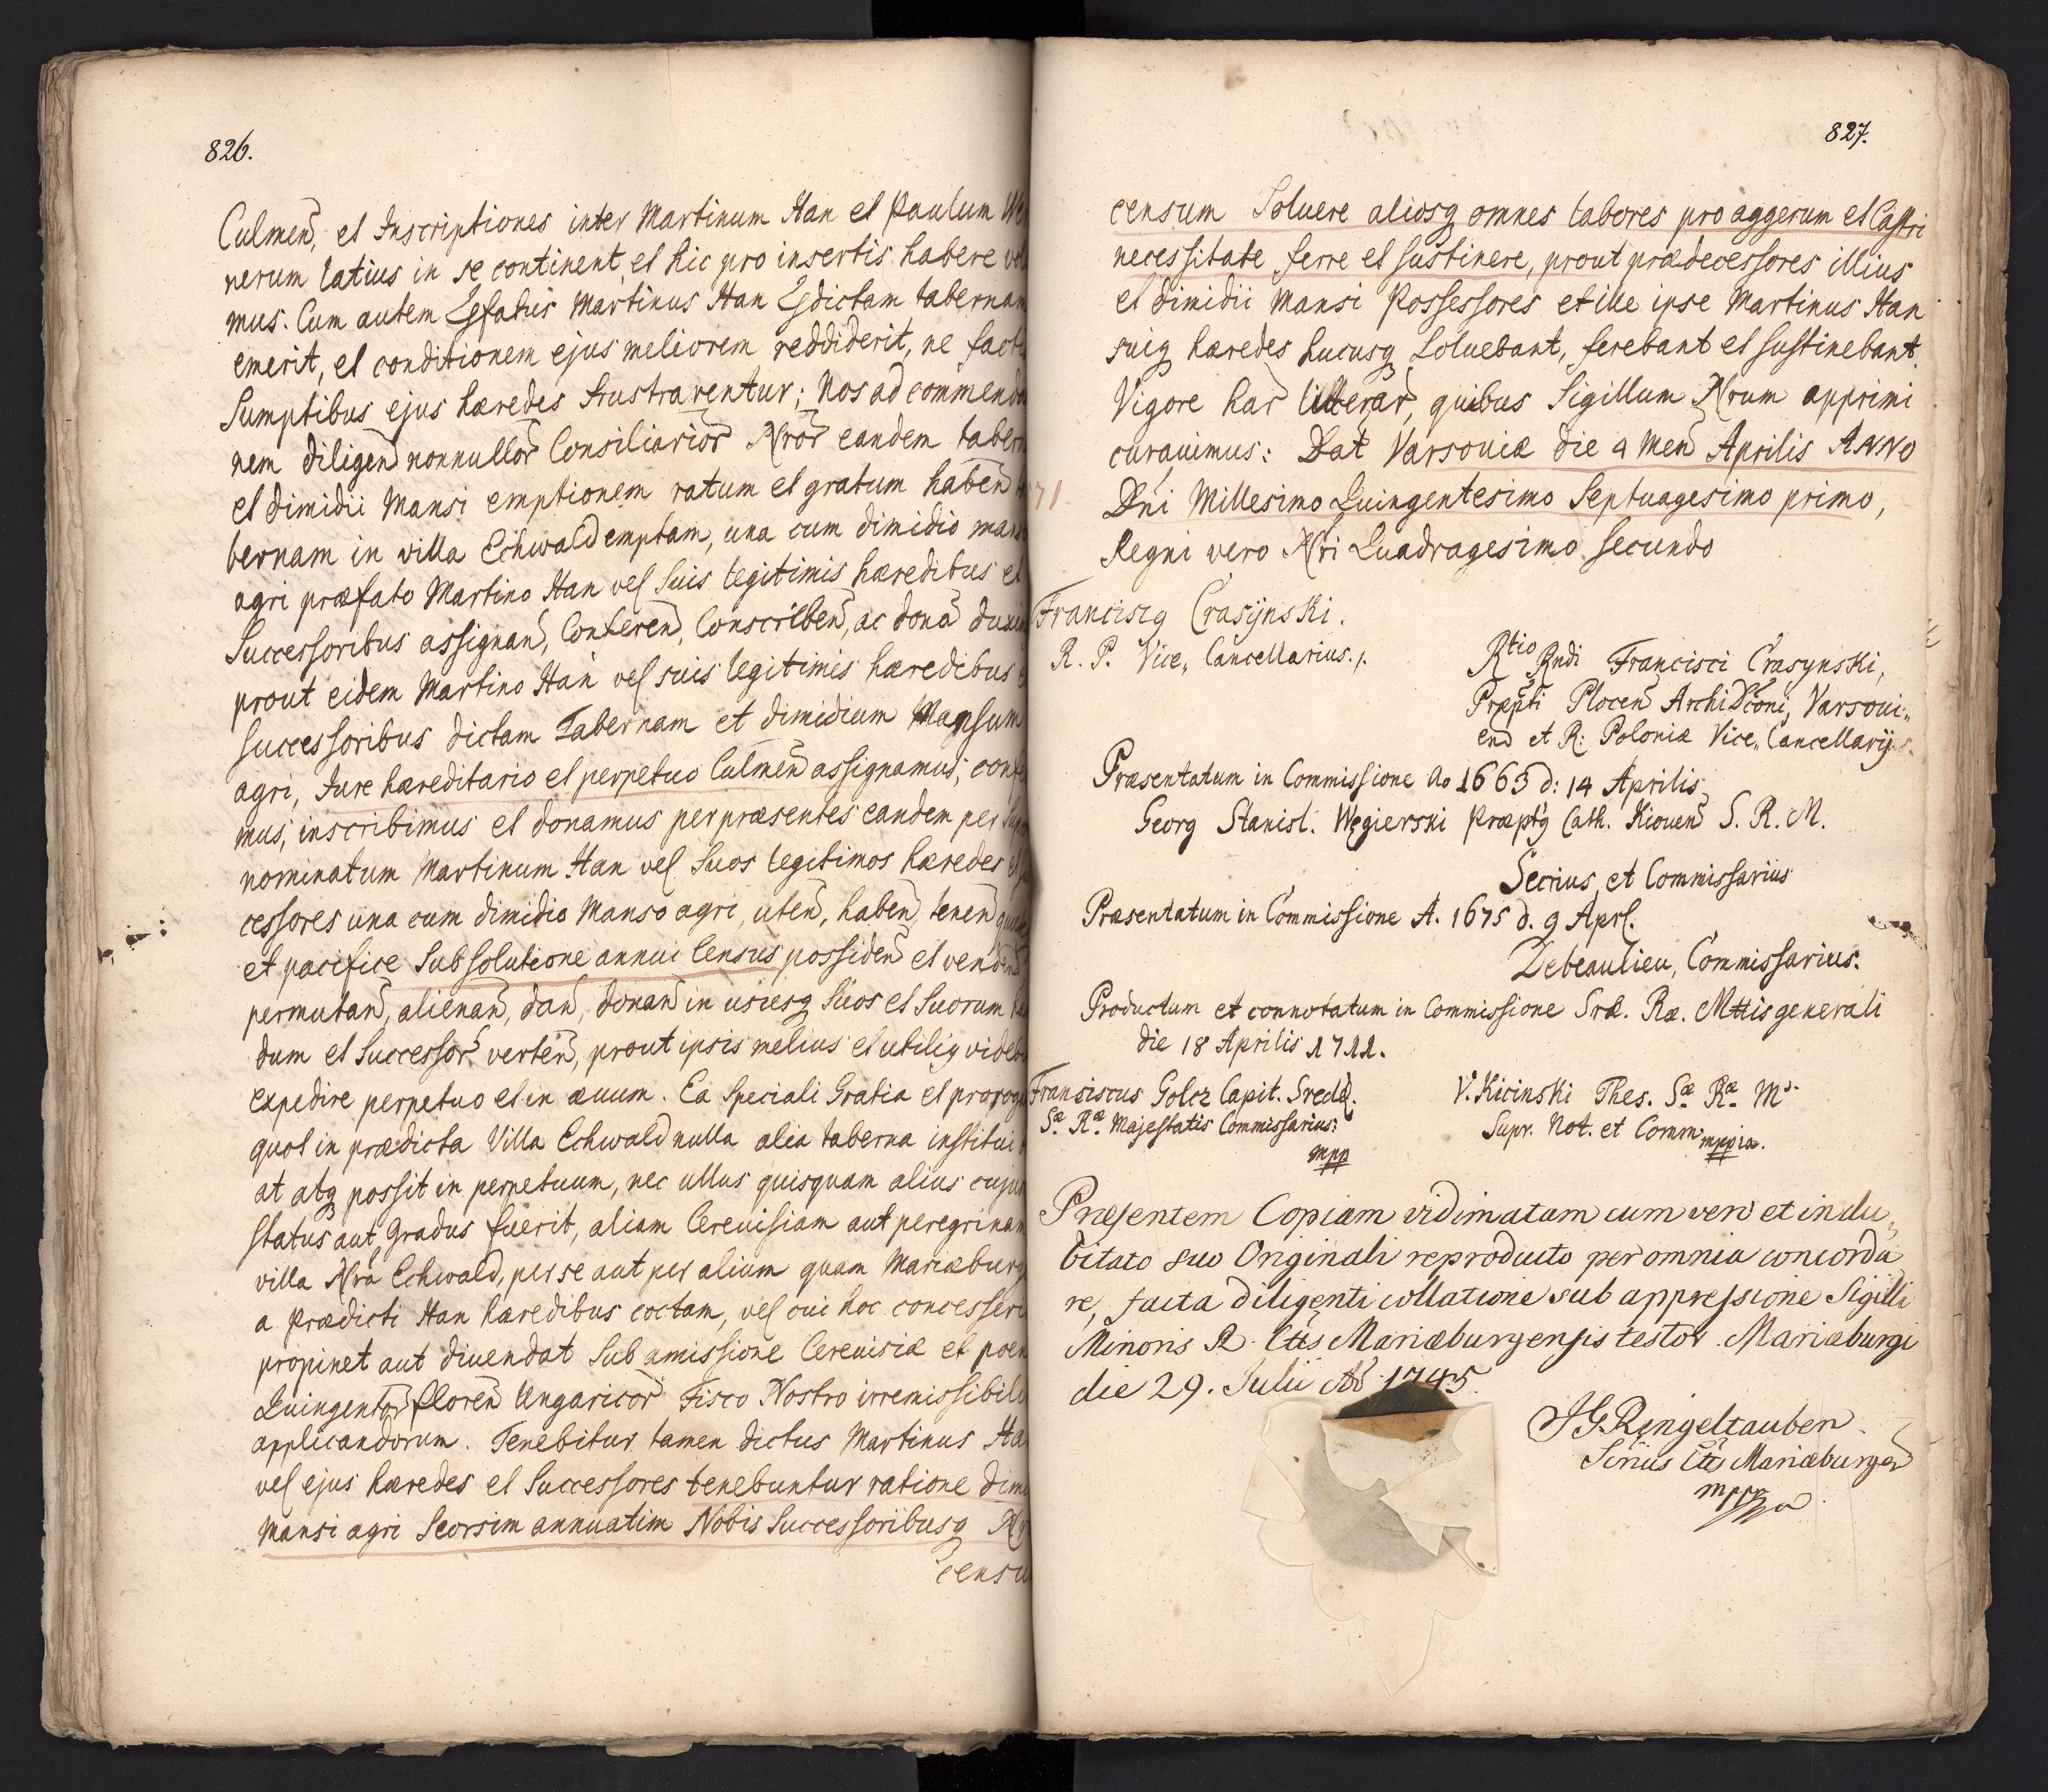 826.
Culmen, et Inscriptiones inter Martinum Han et Paulum
nerum latius in se continent, et hic pro insertis habere
mus. Cum autem Efatus Martinus Han Edictam tabernam
emerit, et conditionem ejus meliorem reddiderit, ne
Sumptibus ejus hæredes frustrarentur; Nos ad
nem diligen nonnullor Consiliarior Nror eandem
et dimidii Mansi emptionem ratum et gratum haben
bernam in villa Echwald emptam, una cum dimidio
agri præfato Martino Han vel Suis legitimis hæredibus et
Successoribus assignan, Conferen, Conscriben, ac dona
prout eidem Martino Han vel suis legitimis hæredibus
successoribus dictam Tabernam et dimidium Mansum
agri, Jure hæreditario et perpetuo Culmen assignamus,
mus, inscribimus et donamus per præsentes eandem per
nominatum Martinum Han vel Suos legitimos hæredes
cessores una cum dimidio Manso agri, uten, haben, tenen
et pacifice Sub solutione annui Census possiden et venden
permutan, alienan, dan, donan in ususq Suos et Suorum
dum et Successor verten, prout ipsis melius et utiliq
expedire perpetuo et in ævum. Ea Speciali Gratia et
quot in prædicta Villa Echwald nulla alia taberna institui
at atq possit in perpetuum, nec ullus quisquam alius
status aut Gradus fuerit, aliam Cerevisiam aut peregrinam
villa Nra Echwald, per se aut per alium quam
a Prædicti Han hæredibus coctam, vel cui hoc
propinet aut divendat Sub amissione Cerevisiæ et
Quingentor floren Ungaricor Fisco Nostro
applicandorum. Tenebitur tamen dictus Martinus
vel ejus hæredes et Successores tenebuntur ratione
Mansi agri Seorsim annuatim Nobis Successoribusq
827.
censum Soluere aliosq omnes labores pro aggerum et Castri
necessitate ferre et sustinere, prout prædecessores illius
et dimidii Mansi Possessores et ille ipse Martinus Han
suiq hæredes hucusq Soluebant, ferebant et sustinebant.
Vigore har litterar, quibus Sigillum Nrum apprimi
curavimus: Dat Varsoviæ die 4 Men Aprilis ANNO
Dni Millesimo Quingentesimo Septuagesimo primo,
Regni vero Nri Quadragesimo secundo
Francisq Crasÿnski.
R. P. Vice„ Cancellarius./.
Rtio Rndi Francisci Crasynski,
Præpti Plocen Archi Dconi, Varsovi„
en et R: Poloniæ Vice„ Cancellarij
Præsentatum in Commissione Ao 1665 d: 14 Aprilis
Georg Stanisl. Węgierski Præptq Cath. Kioven S. R. M.
Secrius et Commissarius
Præsentatum in Commissione A. 1675 d. 9 Aprl.
Debeaulieu, Commissarius.
Productum et connotatum in Commissione Sræ. Ræ. Mttis generali
die 18 Aprilis 1711.
Franciscus Golcz Capit. Sred.
Sæ Ræ Majestatis Commissarius:
mpp
V. Kicinski Thes. Sæ Ræ Ms.
Supr. Not. et Comm mppia.
Præsentem Copiam vidimatam cum vero et indu„
bitato suo Originali reproducto per omnia concorda
re, facta diligenti collatione sub appressione Sigilli
Minoris R. Ctts Mariæburgensis testor. Mariæburgi
die 29. Julii Ao 1745.
J G. Ringeltauben
Scrius Ctts Mariæburgen
mppa